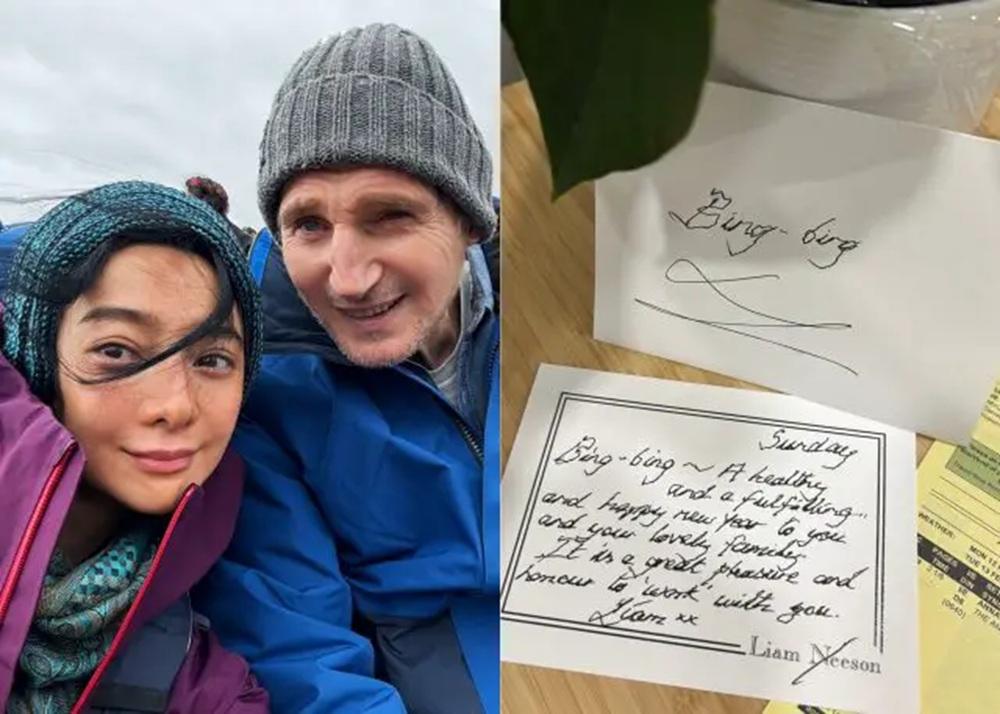 Bing-bing
Sunday
Bing-bing ~ A healthy
and a fulfilling...
and happy new Year to you
and your lovely family
It is a great pleasure and
honour to 'work' with you.
Liam xx
Liam Neeson
WEATHER:
MON
TUE 13
PAGES